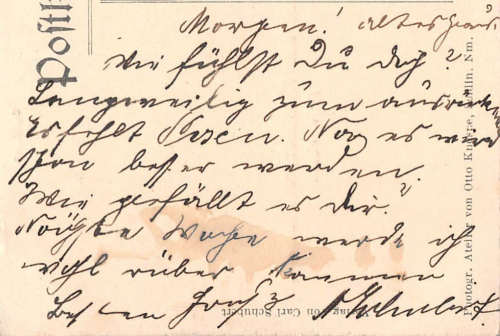 Morgen! altes Haus
Wie fühlst Du Dich?
Langweilig zum
Es fehlt Nor es wird
schon besser werden.
Wie gefällt es Dir?
Nächste Woche werde ich
wohl rüber kommen
Besten Gruß
Postk
Photogr. Atelier von Otto Köllin, Nm.
Verlag von Carl Schubert